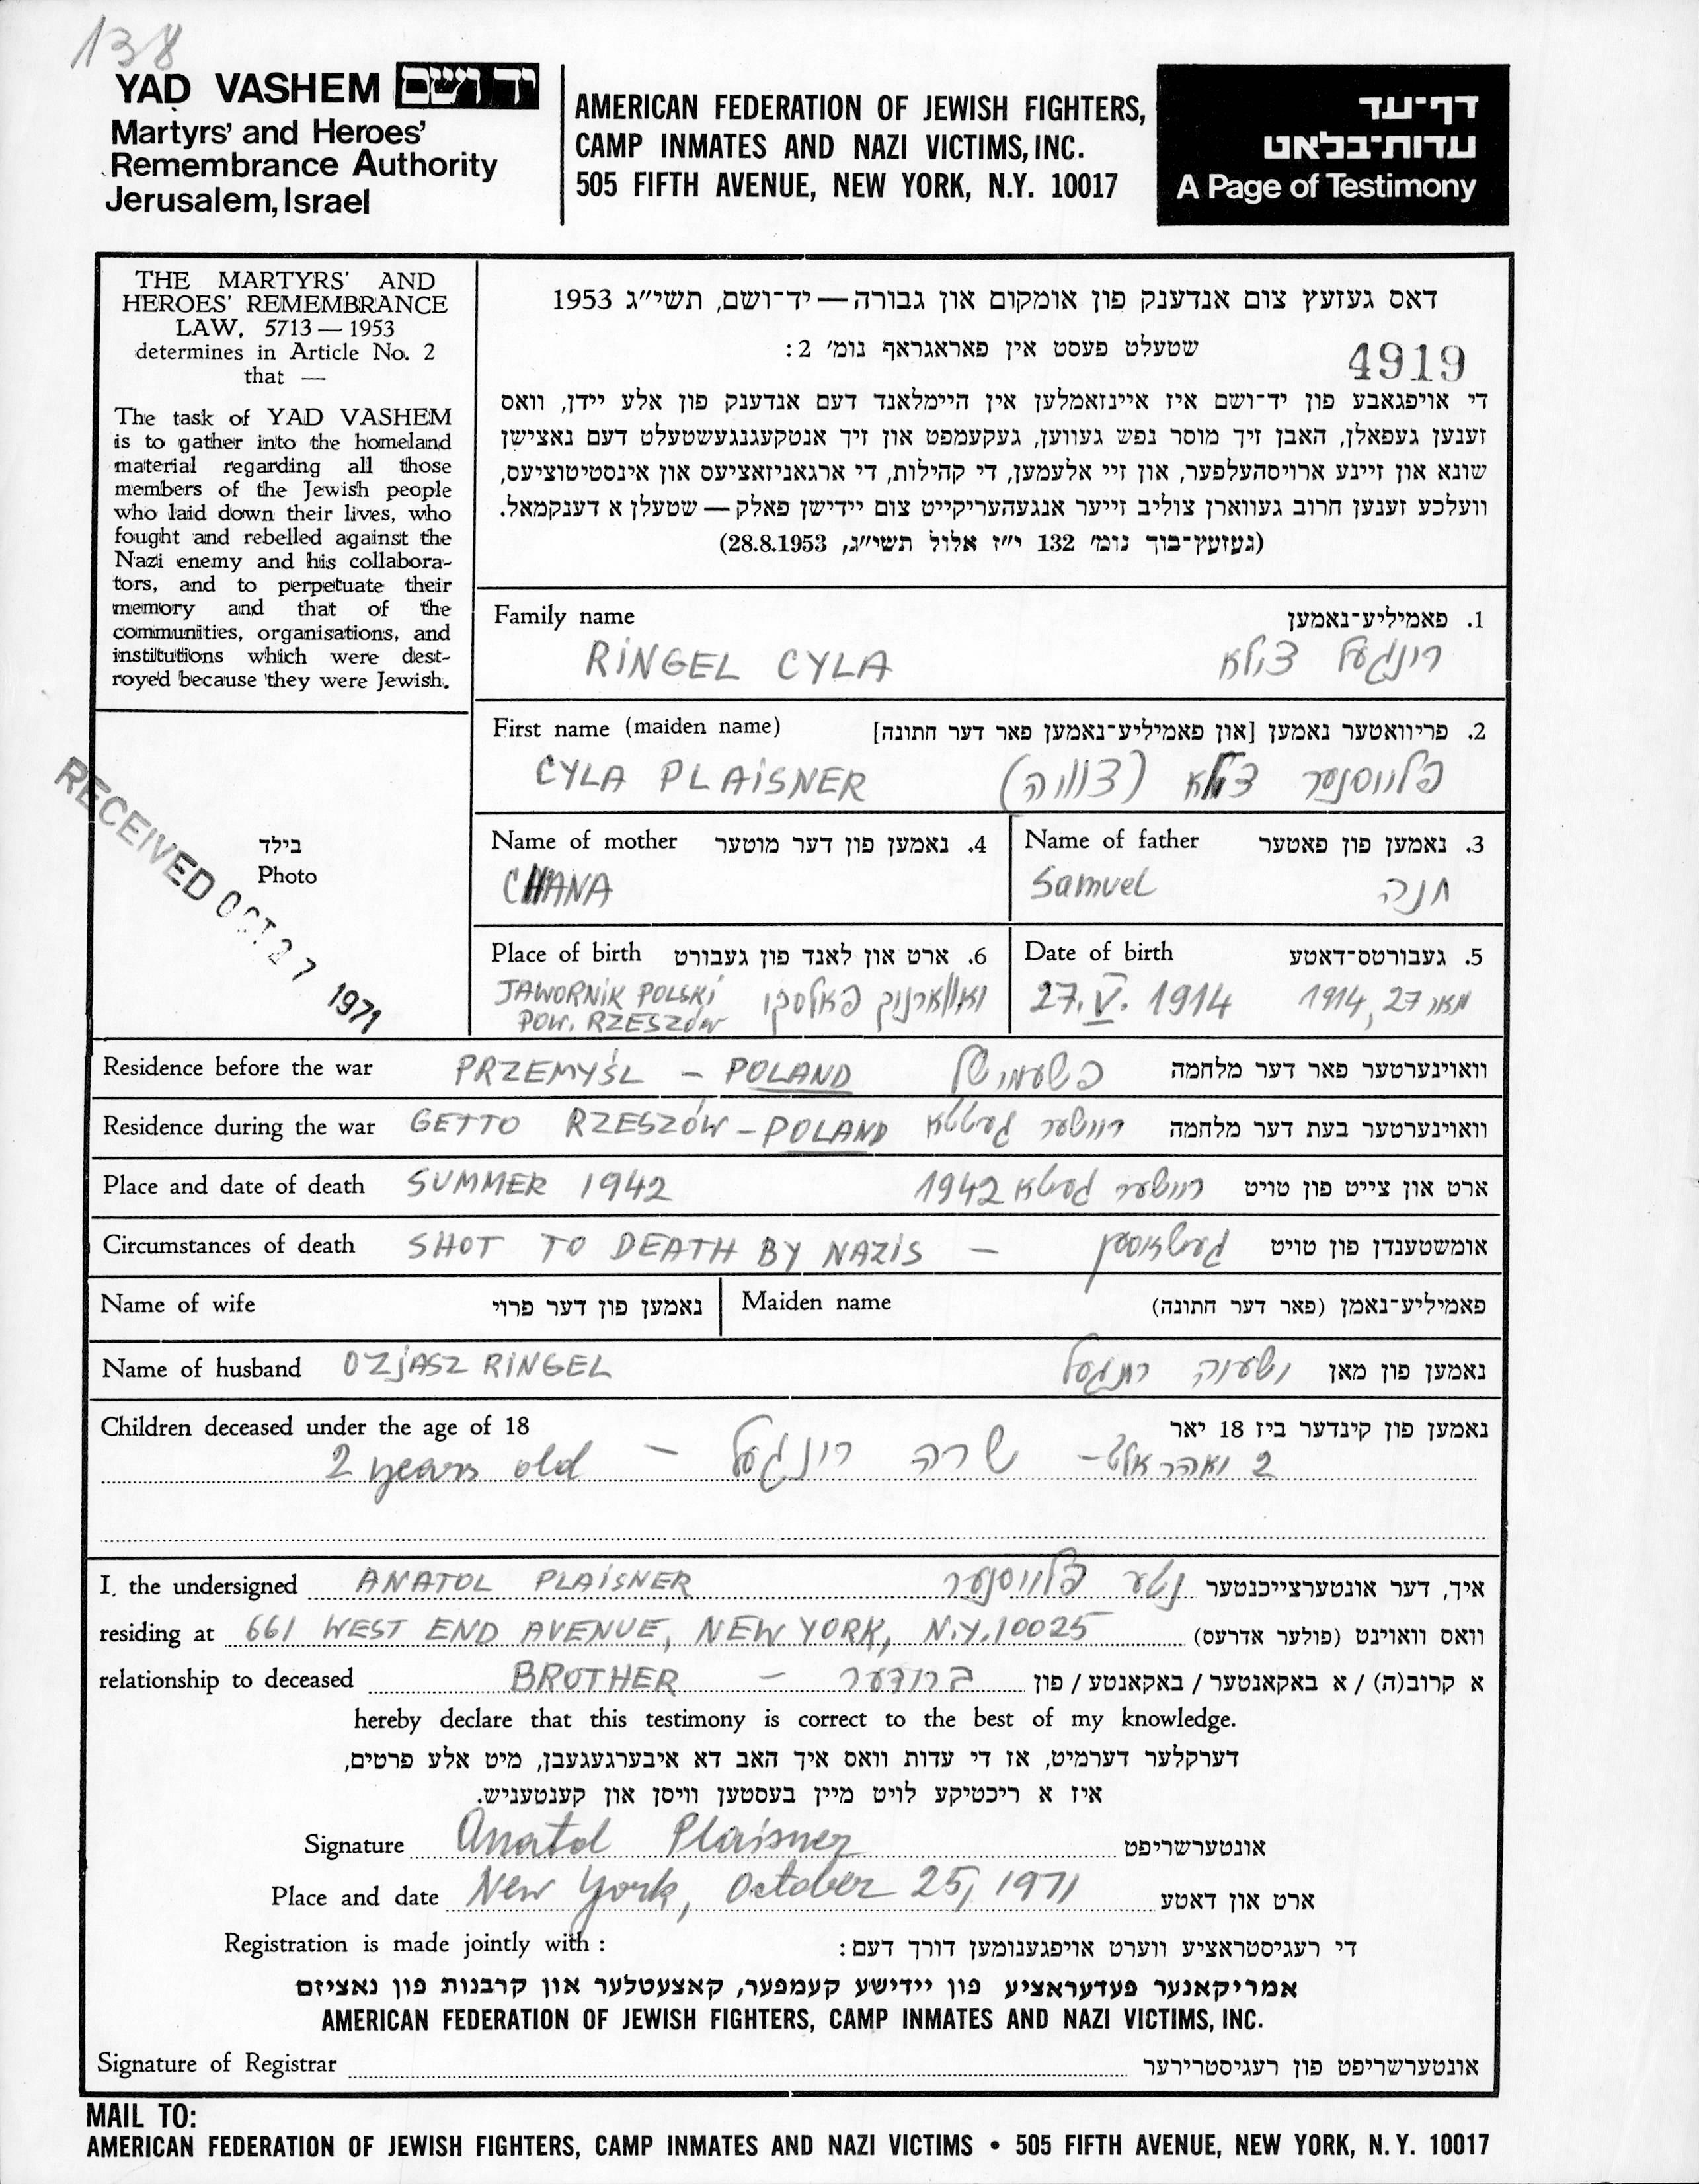 138
YAD VASHEM יד ושם
Martyrs' and Heroes'
Remembrance Authority
Jerusalem, Israel
AMERICAN FEDERATION OF JEWISH FIGHTERS,
CAMP INMATES AND NAZI VICTIMS, INC.
505 FIFTH AVENUE, NEW YORK, N.Y. 10017
דף־עד
עדות־בלאט
A Page of Testimony
THE MARTYRS' AND
HEROES' REMEMBRANCE
LAW, 5713—1953
determines in Article No. 2
that —
The task of YAD VASHEM
is to gather into the homeland
material regarding all those
members of the Jewish people
who laid down their lives, who
fought and rebelled against the
Nazi enemy and his collabora-
tors, and to perpetuate their
memory and that of the
communities, organisations, and
institutions which were dest-
royed because they were Jewish.
דאס געזעץ צום אנדענק פון אומקום און גבורה — יד־ושם, תשי״ג 1953
שטעלט פעסט אין פאראגראף נומ׳ 2:
4919
די אויפגאבע פון יד־ושם איז איינזאמלען אין היימלאנד דעם אנדענק פון אלע יידן, וואס
זענען געפאלן, האבן זיך מוסר נפש געווען, געקעמפט און זיך אנטקעגנגעשטעלט דעם נאצישן
שונא און זיינע ארויסהעלפער, און זיי אלעמען, די קהילות, די ארגאניזאציעס און אינסטיטוציעס,
וועלכע זענען חרוב געווארן צוליב זייער אנגעהעריקייט צום יידישן פאלק — שטעלן א דענקמאל.
(געזעץ־בוך נומ׳ 132 י״ז אלול תשי״ג, 28.8.1953)
Family name 1. פאמיליע־נאמען
RINGEL CYLA רינגעל צילא
First name (maiden name) 2. פריוואטער נאמען [און פאמיליע־נאמען פאר דער חתונה]
CYLA PLAISNER פלייסנער צילא (צוויה)
RECEIVED OCT 27 1971
בילד
Photo
Name of mother 4. נאמען פון דער מוטער
CHANA
Name of father 3. נאמען פון פאטער
Samuel חנה
Place of birth 6. ארט און לאנד פון געבורט
JAWORNIK POLSKI יאווארניק פאלסקי
POW. RZESZÓW
Date of birth 5. געבורטס־דאטע
27.V. 1914 מאי 27, 1914
Residence before the war PRZEMYŚL - POLAND פשעמישל וואוינערטער פאר דער מלחמה
Residence during the war GETTO RZESZÓW - POLAND ריישער געטטא וואוינערטער בעת דער מלחמה
Place and date of death SUMMER 1942 ריישער געטטא 1942 ארט און צייט פון טויט
Circumstances of death SHOT TO DEATH BY NAZIS — אומשטענדן פון טויט
Name of wife נאמען פון דער פרוי Maiden name פאמיליע־נאמן (פאר דער חתונה)
Name of husband OZJASZ RINGEL ישעיה רינגעל נאמען פון מאן
Children deceased under the age of 18 נאמען פון קינדער ביז 18 יאר
2 years old — שרה רינגעל — 2 יאהר אלט
I, the undersigned ANATOL PLAISNER נטע פלייסנער איך, דער אונטערצייכנטער
residing at 661 WEST END AVENUE, NEW YORK, N.Y. 10025 וואס וואוינט (פולער אדרעס)
relationship to deceased BROTHER — ברודער א קרוב(ה) / א באקאנטער / באקאנטע / פון
hereby declare that this testimony is correct to the best of my knowledge.
דערקלער דערמיט, אז די עדות וואס איך האב דא איבערגעגעבן, מיט אלע פרטים,
איז א ריכטיקע לויט מיין בעסטען וויסן און קענטעניש.
Signature Anatol Plaisner אונטערשריפט
Place and date New York, October 25, 1971 ארט און דאטע
Registration is made jointly with: די רעגיסטראציע ווערט אויפגענומען דורך דעם:
אמריקאנער פעדעראציע פון יידישע קעמפער, קאצעטלער און קרבנות פון נאציזם
AMERICAN FEDERATION OF JEWISH FIGHTERS, CAMP INMATES AND NAZI VICTIMS, INC.
Signature of Registrar אונטערשריפט פון רעגיסטרירער
MAIL TO:
AMERICAN FEDERATION OF JEWISH FIGHTERS, CAMP INMATES AND NAZI VICTIMS • 505 FIFTH AVENUE, NEW YORK, N.Y. 10017